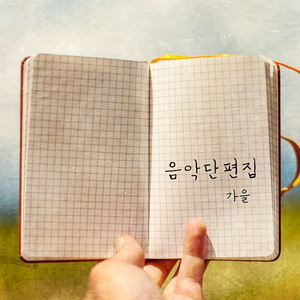 음악단편집
가을